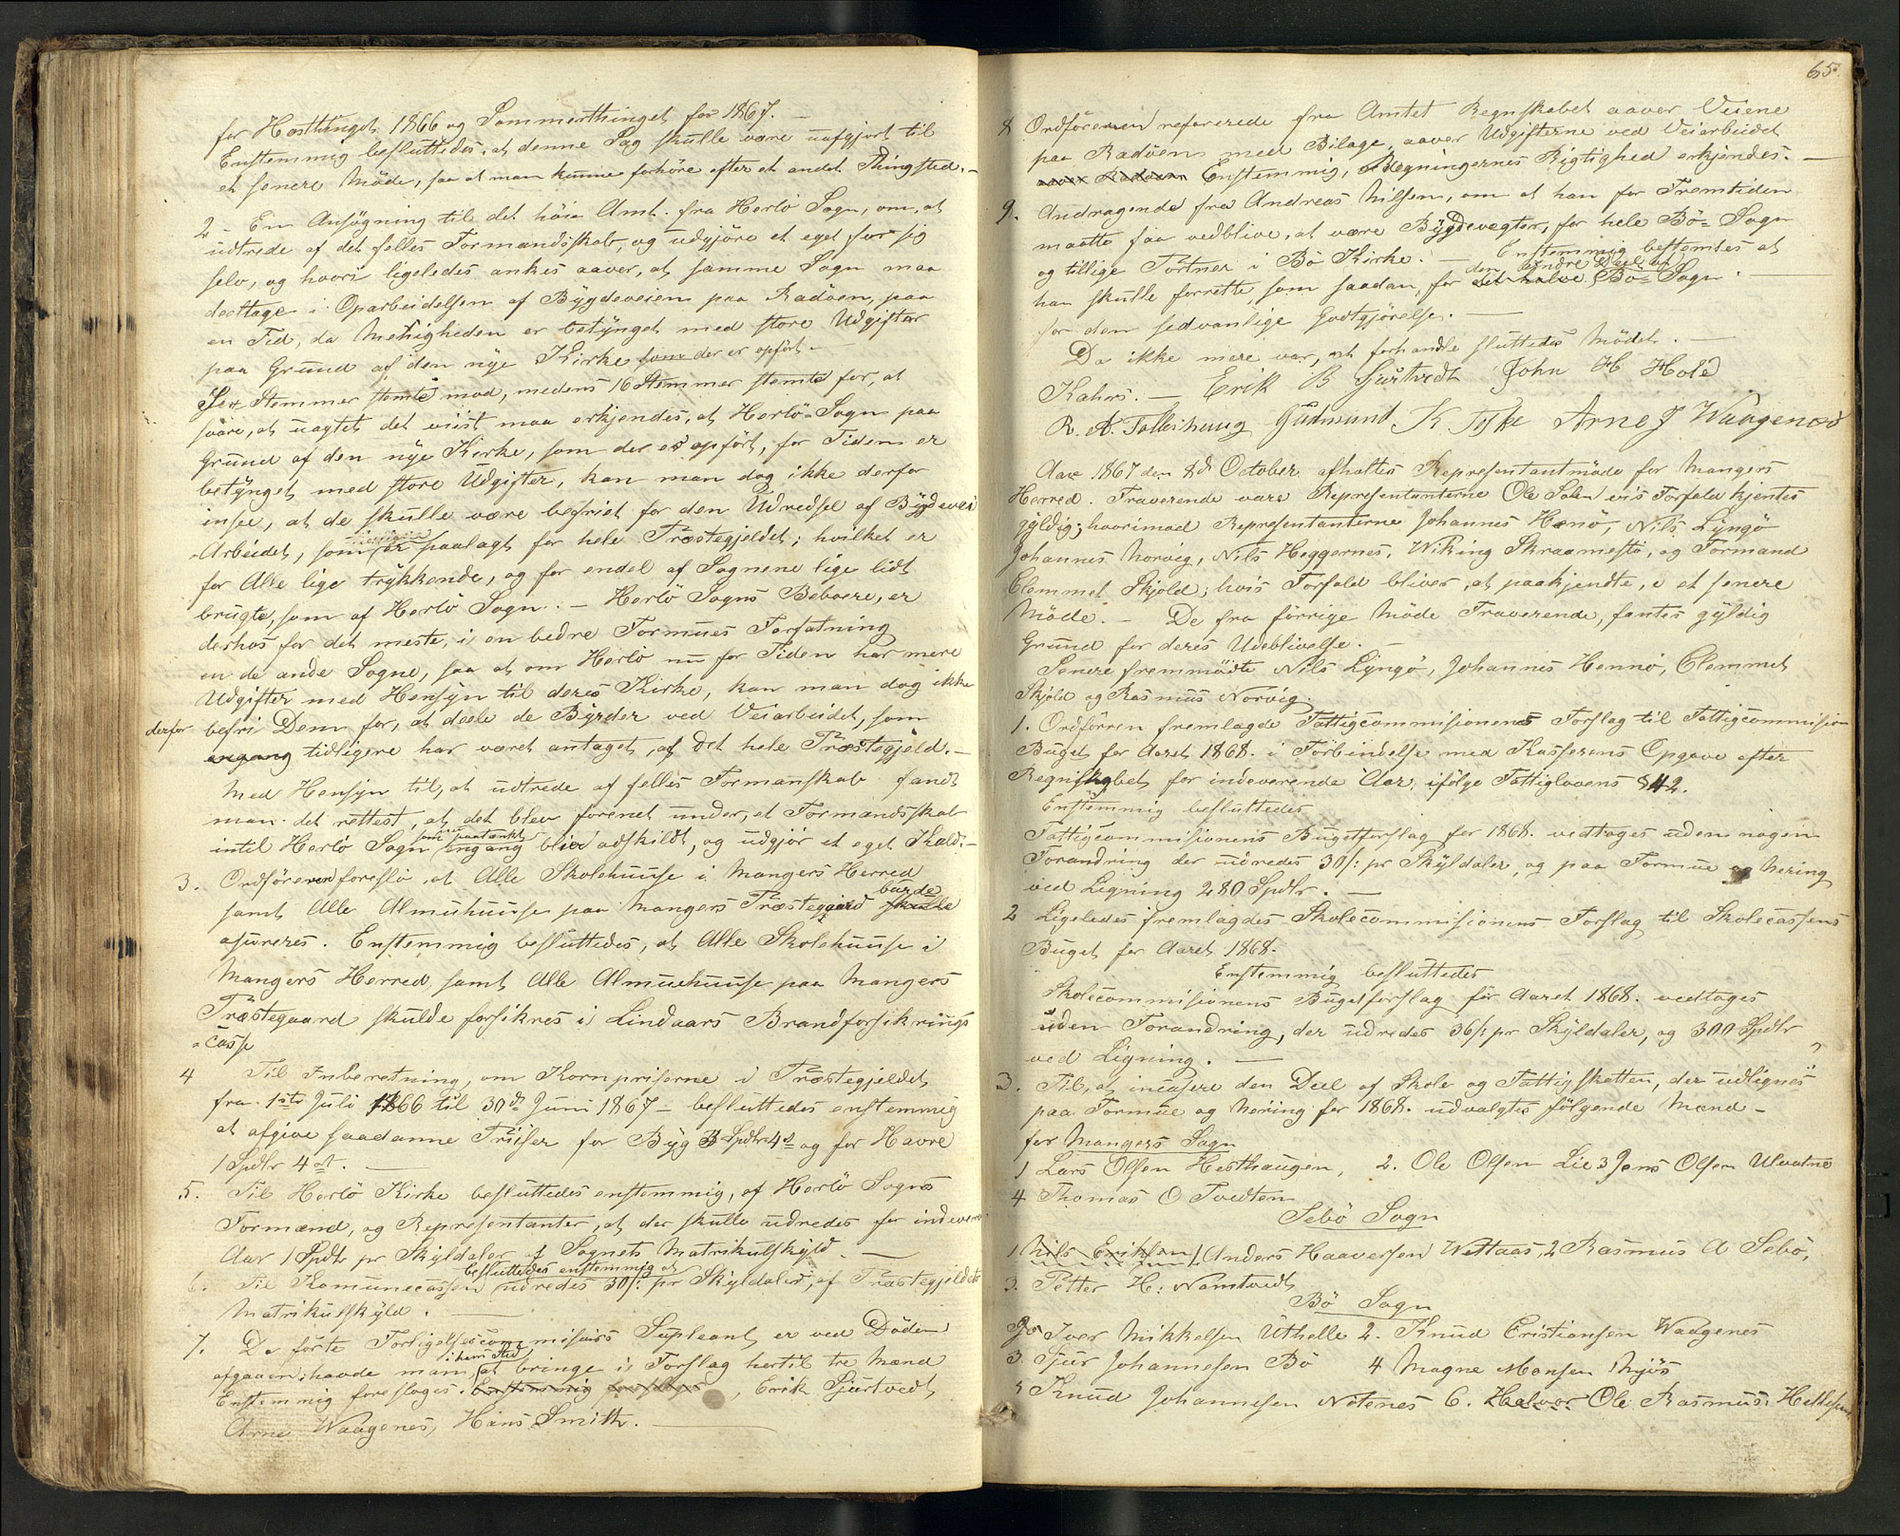 for Høstthinget 1866 og Sommerthinget for 1867. —
Enstemmig besluttedes, at denne Sag skulle være uafgjort til
et senere Møde, saa at man kunne forhöre efter et andet Thingsted. —
2 - En Ansögning til det höie Amt. fra Herlö Sogn, om, at
udtrede af det felles Formandsskab, og udgjöre et eget for sig
selv, og hvori ligeledes ankes aaver, at samme Sogn maa
deeltage i Oparbeidelsen af Bÿgdeveien paa Radöen, paa
en Tid, da Menigheden er betÿnget med store Udgifter
paa Grund af den nye Kirke som der er opfört. -
Sex Stemmer stemte mod, medens 16 Stemmer stemte for, at
svare, at uagtet det viist maa erkjendes, at Herlö-Sogn paa
Grund af den nÿe Kirke, som der er opfört, for Tiden er
betÿnget med store Udgifter, kan man dog ikke derfor
insee, at de skulle være befriet for den Udredsel af Bÿgdevei
-Arbeidet, som er paalagt for hele Præstegjeldet; hvilket er
for Alle lige trÿkkende, og for endel af Sognene lige lidt
brugte, som af Herlö Sogn. - Herlö Sogns Beboere, er
deshos for det meste, i en bedre Formues Forfatning
en de ande Sogne, saa at om Herlö nu for Tiden har mere
Udgifter med Hensyn til deres Kirke, kan man dog ikke
derfor befri Dem for, at deele de Bÿrder ved Veiarbeidet, som
engang tidligere har været antaget, af det hele Præstegjeld. —
Med Hensyn til, at udtrede af felles Formanskab fandt
man det rettest, at det blev forenet under, et Formandsskab
som paatænkt
intil Herlö Sogn engang bliver adskildt, og udgjör et eget Kald. -
3. Ordföreren foreslo, at Alle Skolehuuse i Mangers Herred
burde
samt Alle Almuhuuse paa Mangers Præstegaard skulle
asureres. Enstemmig besluttedes, at Alle Skolehuuse i
Mangers Herred, samt Alle Almuehuuse paa Mangers
Præstegaard skulde forsikres i Lindaars Brandforsikrings
-casse
4 Til Inberetning, om Kornpriserne i Præstegjeldet
fra 1ste Juli 1866 til 30de Juni 1867 - besluttedes enstemmig
at afgive saadanne Priiser for Bÿg 3 Spdlr 4 ort og for Havre
1 Spdlr 4 ort. —
5. Til Herlö Kirke besluttedes enstemmig, af Herlö Sogns
Formænd, og Representanter, at der skulle udredes for indevær
Aar 1 Spdlr pr Skÿldaler af Sognets Matrikulskÿld. —
besluttedes enstemmig at
6. Til Komunecassen udredes 30 s: pr Skÿldaler, af Præstegjeldets
Matrikulskÿld. —
7. Da förte Forligelsescommisairs Supleant er ved Döden
i hans Sted
afgaaen; havde man, at bringe i Forslag hertil tre Mænd
Enstemmig foresloges. Enstemmig foresloges, Erik Sjurtvedt,
Arne Waagenes, Hans Smith. —
65.
8 Ordföreren refererede fra Amtet Regnskabet aaver Veiene
paa Radöen med Bilage, aaver Udgifterne ved Veiarbeidet
aaver Radöen Enstemmig, Regningernes Rigtighed erkjendes. —
9. Andragende fra Andreas Nilsen, om at han for Fremtiden
maatte faa vedblive, at være Bÿgdevegter, for hele Bö-Sogn
og tillige Portner i Bö Kirke. - Enstemmig bestemtes at
den söndre Deel af
han skulle forrette, som saadan, for det halve Bö-Sogn
for den sedvanlige Godtgjörelse. —
Da ikke mere var, at forhandle sluttedes Mödet. —
Kahrs. — Erik B Sjurtvedt John H Hole
R. A. Tolleshaug Gudmund K Toska Arne J Waagenes
Aar 1867 den 8de October afholtes Representantmöde for Mangers
Herred. Fraverende vare Representanterne Ole Solen vis Forfald kjentes
gÿldig; hvorimod Representanterne Johannes Henö, Nils Lÿngö
Johannes Norvig, Nils Heggernes, Wiking Skraamestö, og Formand
Clemmet Skjold; hvis Forfald bliver, at paakjendte, i et senere
Möde. - De fra förrige Möde Fraverende, fantes gÿldig
Grund for deres Udeblivelse. —
Senere fremmödte Nils Lÿngö, Johannes Hennö, Clemmet
Skjold og Rasmus Norvig.
1. Ordförren fremlagde Fattigcommisionens Forslag til Fattigcommision
Buget for Aaret 1868. i Forbindelse med Kasserens Opgave efter
Regnskabet for indeverende Aar, ifölge Fattiglovens § 42.
Enstemmig besluttedes
Fattigcommisionens Bugetforslag for 1868. vedtages uden nogen
Forandring der udredes 30 s: pr Skÿldaler, og paa Formue og Nering
ved Ligning 280 Spdlr. —
2 Ligeledes fremlagdes Skolecommisionens Forslag til Skolecassens
Buget for Aaret 1868.
Enstemmig besluttedes
Skolecommisionens Bugetforslag för Aaret 1868. vedtages
uden Forandring, der udredes 36 s: pr Skÿldaler, og 300 Spdlr
ved Ligning. —
3. Til, at incasere den Deel af Skole og Fattigskatten, der udlignes
paa Formue og Nering for 1868. udvalgtes fölgende Mænd -
for Mangers Sogn
1 Lars Olsen Hesthaugen, 2. Ole Olsen Lie 3 Jens Olsen Ulvatne
4 Thomas O Tvedten
Sebö Sogn
1 Nils Eriksen 1. Anders Haaversen Wettaas, 2 Rasmus A Sebö,
3. Petter H: Namtvedt
Bö Sogn
Iver Mikkelsen Uthelle 2. Knud Cristiansen Waagenes
3. Sjur Johannesen Bö 4 Magne Monsen Mjös
5 Knud Johannesen Notenes 6. Halvor Ole Rasmus: